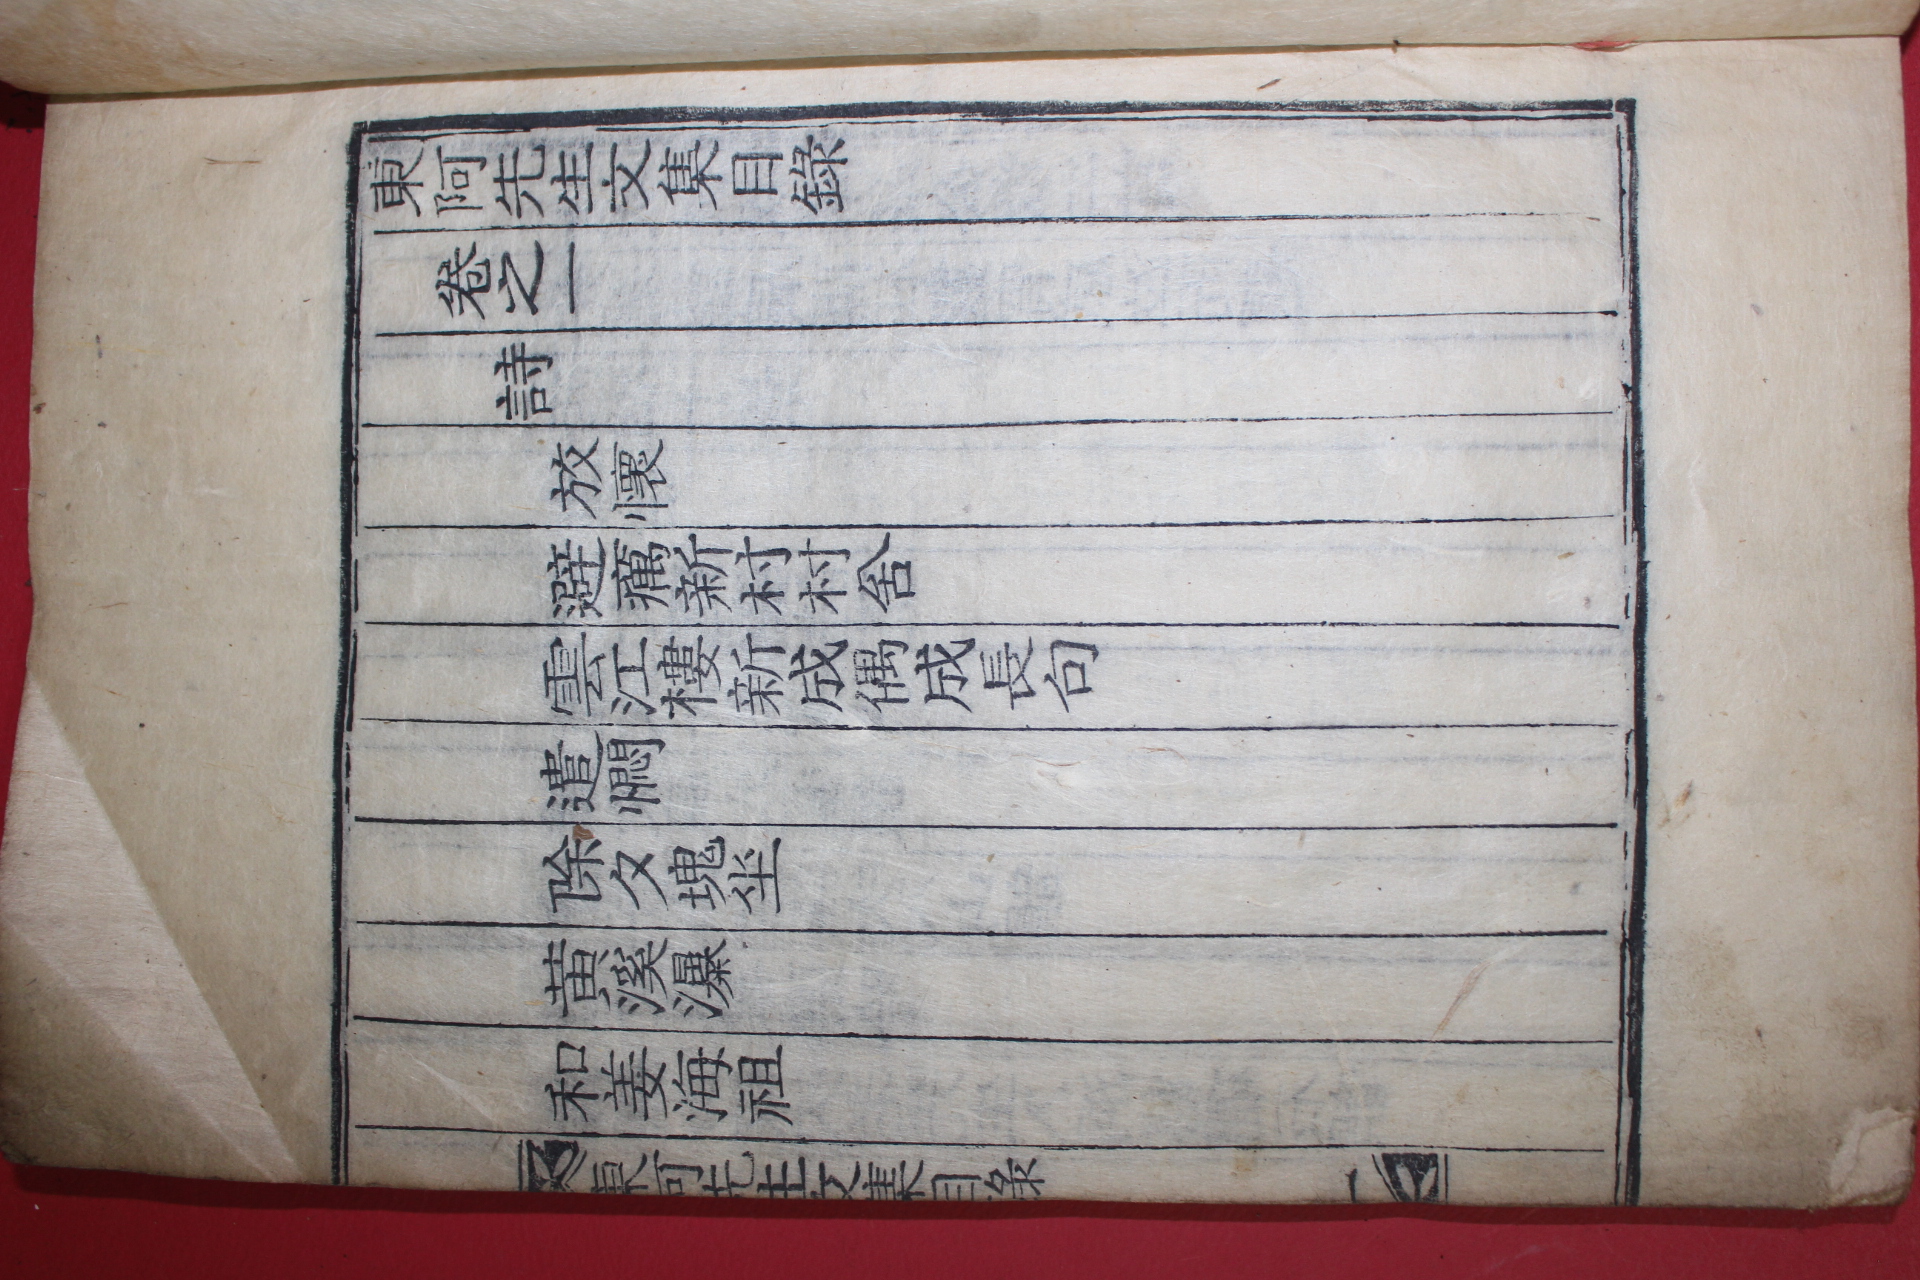 東阿先生文集目錄
卷之一
詩
放懷
避癘新村村舍
雲江樓新成偶成長句
遣憫
除夕塊坐
黃溪瀑
和姜海祖
東阿先生文集目錄
一